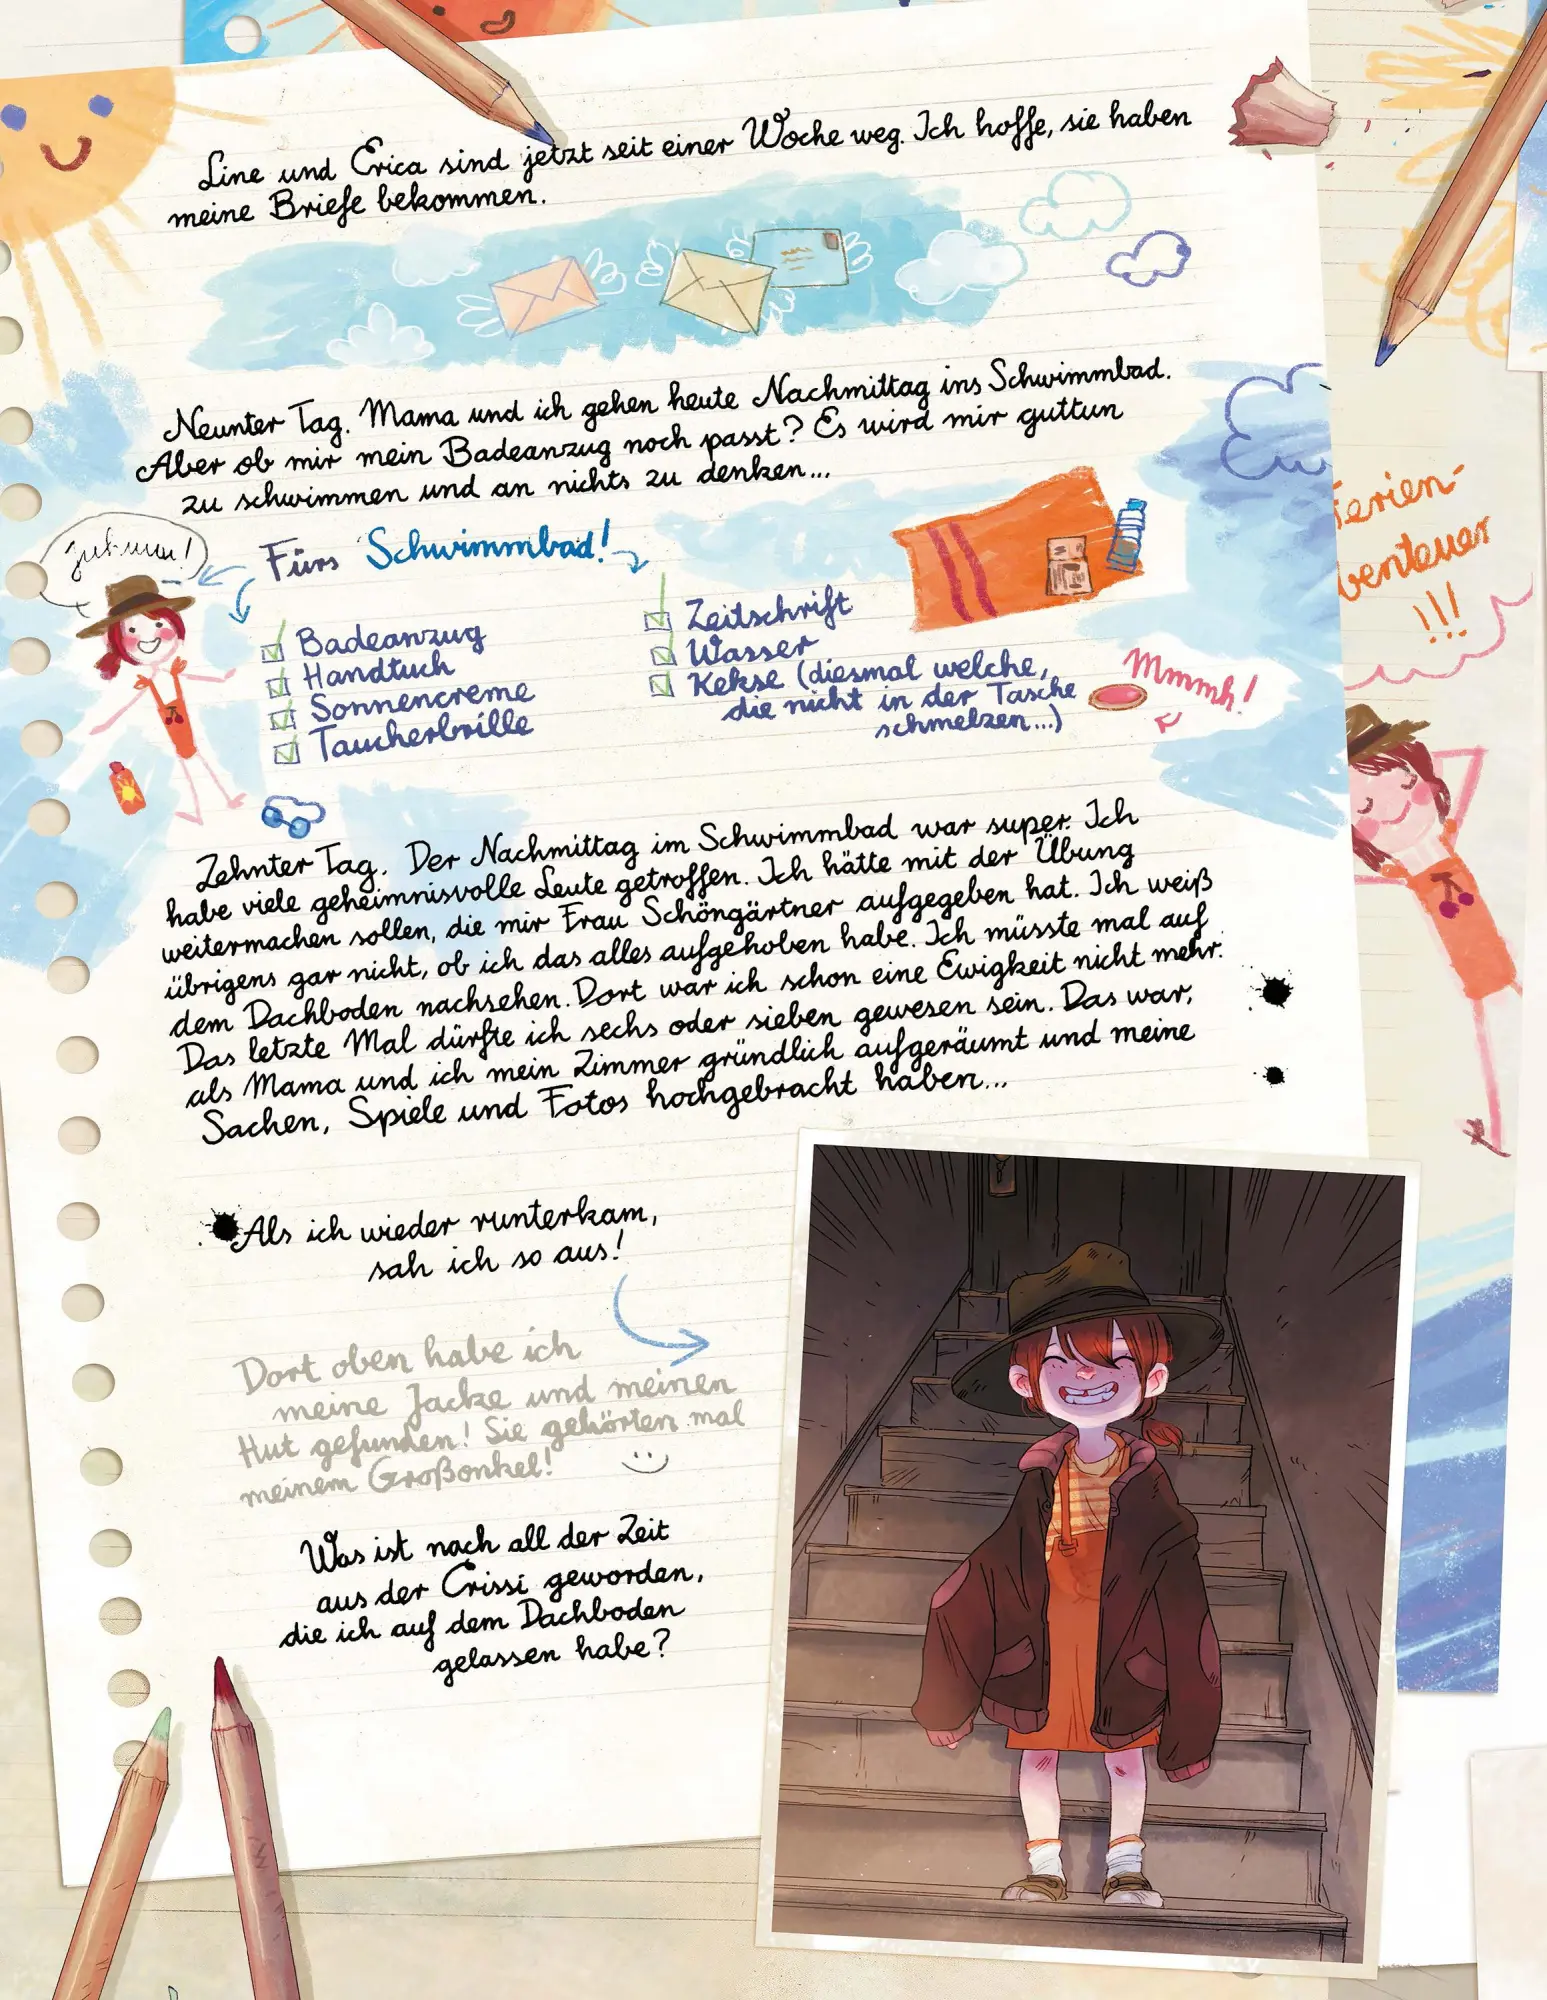 Line und Erica sind jetzt seit einer Woche weg. Ich hoffe, sie haben
meine Briefe bekommen.
Neunter Tag. Mama und ich gehen heute Nachmittag ins Schwimmbad.
Aber ob mir mein Badeanzug noch passt? Es wird mir guttun
zu schwimmen und an nichts zu denken...
Fürs Schwimmbad!
Badeanzug
Handtuch
Sonnencreme
Taucherbrille
Zeitschrift
Wasser
Kekse (diesmal welche,
die nicht in der Tasche
schmelzen...)
Mmmh!
Zehnter Tag. Der Nachmittag im Schwimmbad war super. Ich
habe viele geheimnisvolle Leute getroffen. Ich hätte mit der Übung
weitermachen sollen, die mir Frau Schöngärtner aufgegeben hat. Ich weiß
übrigens gar nicht, ob ich das alles aufgehoben habe. Ich müsste mal auf
dem Dachboden nachsehen. Dort war ich schon eine Ewigkeit nicht mehr.
Das letzte Mal dürfte ich sechs oder sieben gewesen sein. Das war,
als Mama und ich mein Zimmer gründlich aufgeräumt und meine
Sachen, Spiele und Fotos hochgebracht haben...
Als ich wieder runterkam,
sah ich so aus!
Dort oben habe ich
meine Jacke und meinen
Hut gefunden! Sie gehörten mal
meinem Großonkel!
Was ist nach all der Zeit
aus der Crissi geworden,
die ich auf dem Dachboden
gelassen habe?
Ferien-
benteuer
!!!